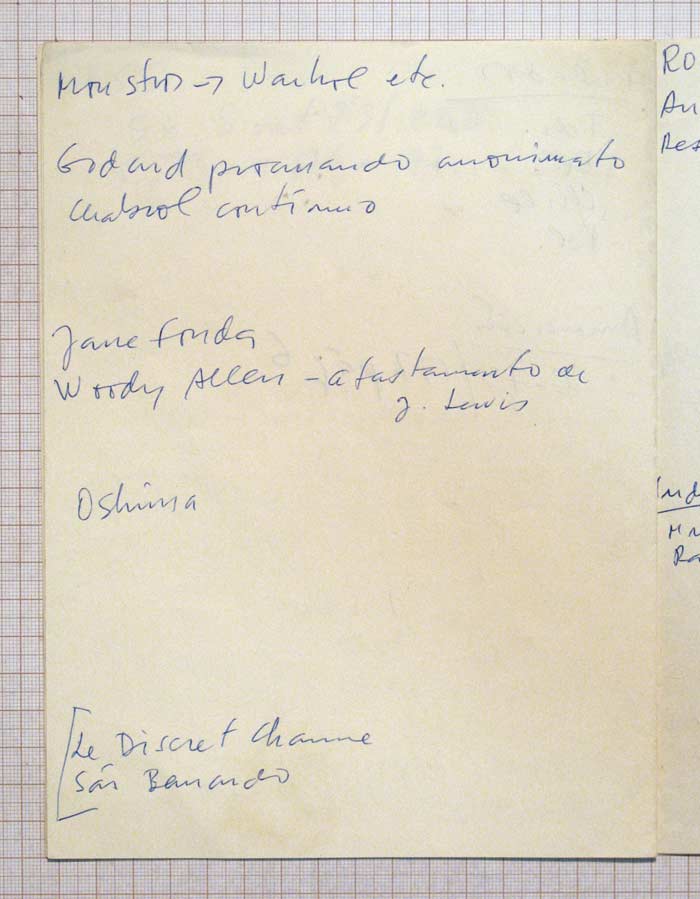 Monstros → Warhol etc.
Godard procurando anonimato
Chabrol contínuo
Jane Fonda
Woody Allen – afastamento de
J. Lewis
Oshima
Le Discret Charme
São Bernardo
RO
An
Res
Ind